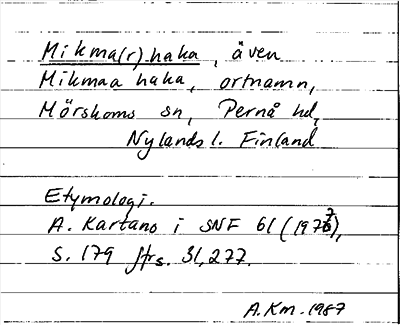 Mikma(r)haka, även
Mikmaa haka, ortnamn,
Mörskoms sn, Pernå hd,
Nylands l. Finland
Etymologi.
A. Kartano i SNF 61 (1977),
s. 179 ffrs. 31,277.
A.Km. 1987